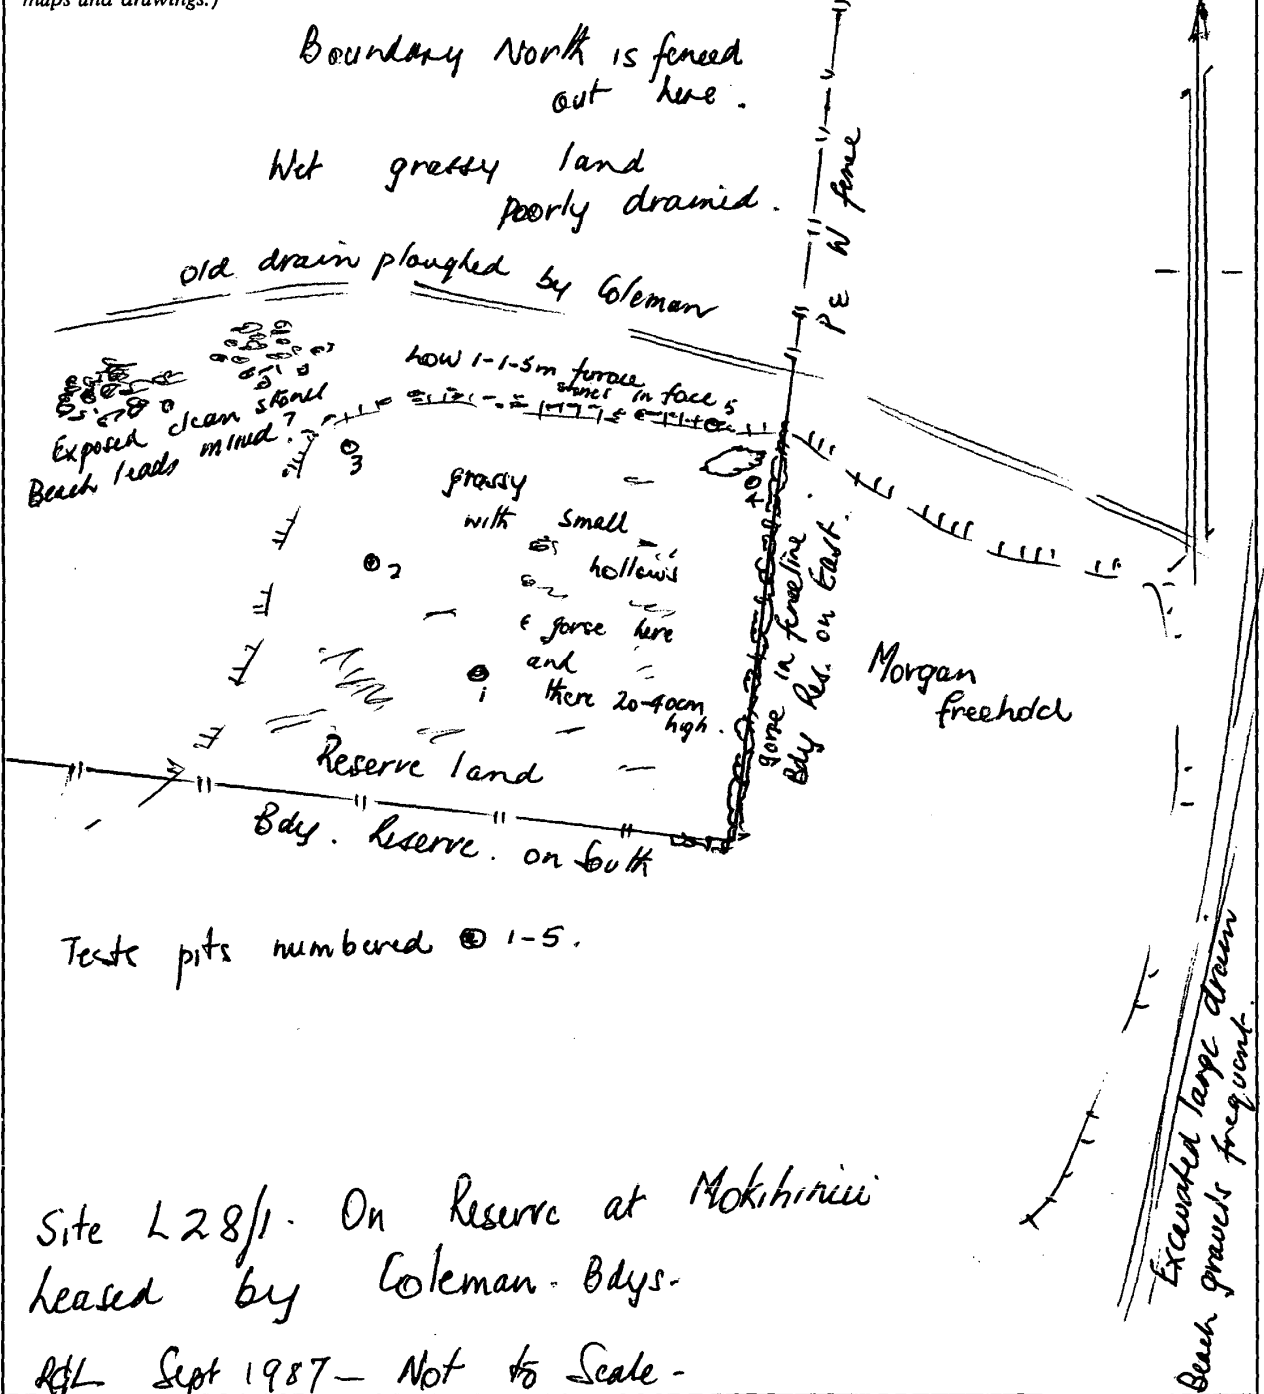 maps and drawings.)
Boundary North is fenced
out here.
Wet grassy land
poorly drained.
P & W fence
old drain ploughed by Coleman
Low 1-1-5m terrace face
stones in face
5
Exposed clean stones
Beach leads mined?
3
grassy
with small
hollows
& gorse here
and
there 20-40cm
high.
4
2
1
gorse in fenceline.
Bdy Res. on East.
Morgan
freehold
Reserve land
Bdy. Reserve. on South
Teste pits numbered 1-5.
Excavated large drain
Beach gravels frequent.
Site L28/1. On Reserve at Mokihinui
Leased by Coleman. Bdys-
Sept 1987 - Not to Scale -